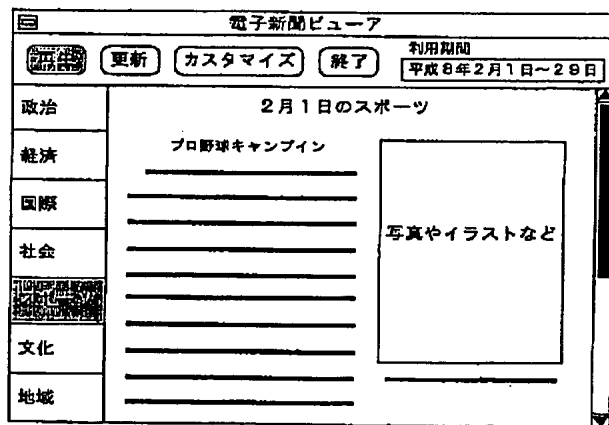 電子新聞ビューア
更新
カスタマイズ
終了
利用期間
平成8年2月1日~29日
政治
経済
国際
社会
文化
地域
2月1日のスポーツ
プロ野球キャンプイン
写真やイラストなど